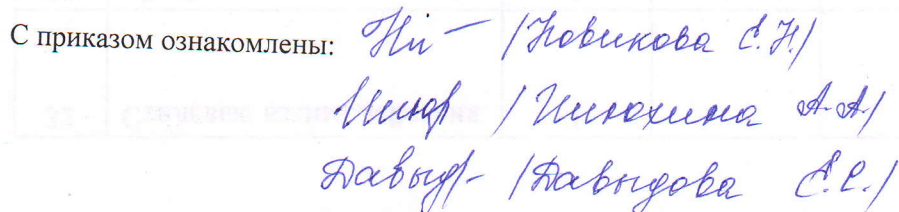 С приказом ознакомлены: /Новикова Е.Н./
/Шиюхина А.А/
Давыд /Давыдова Е.С./